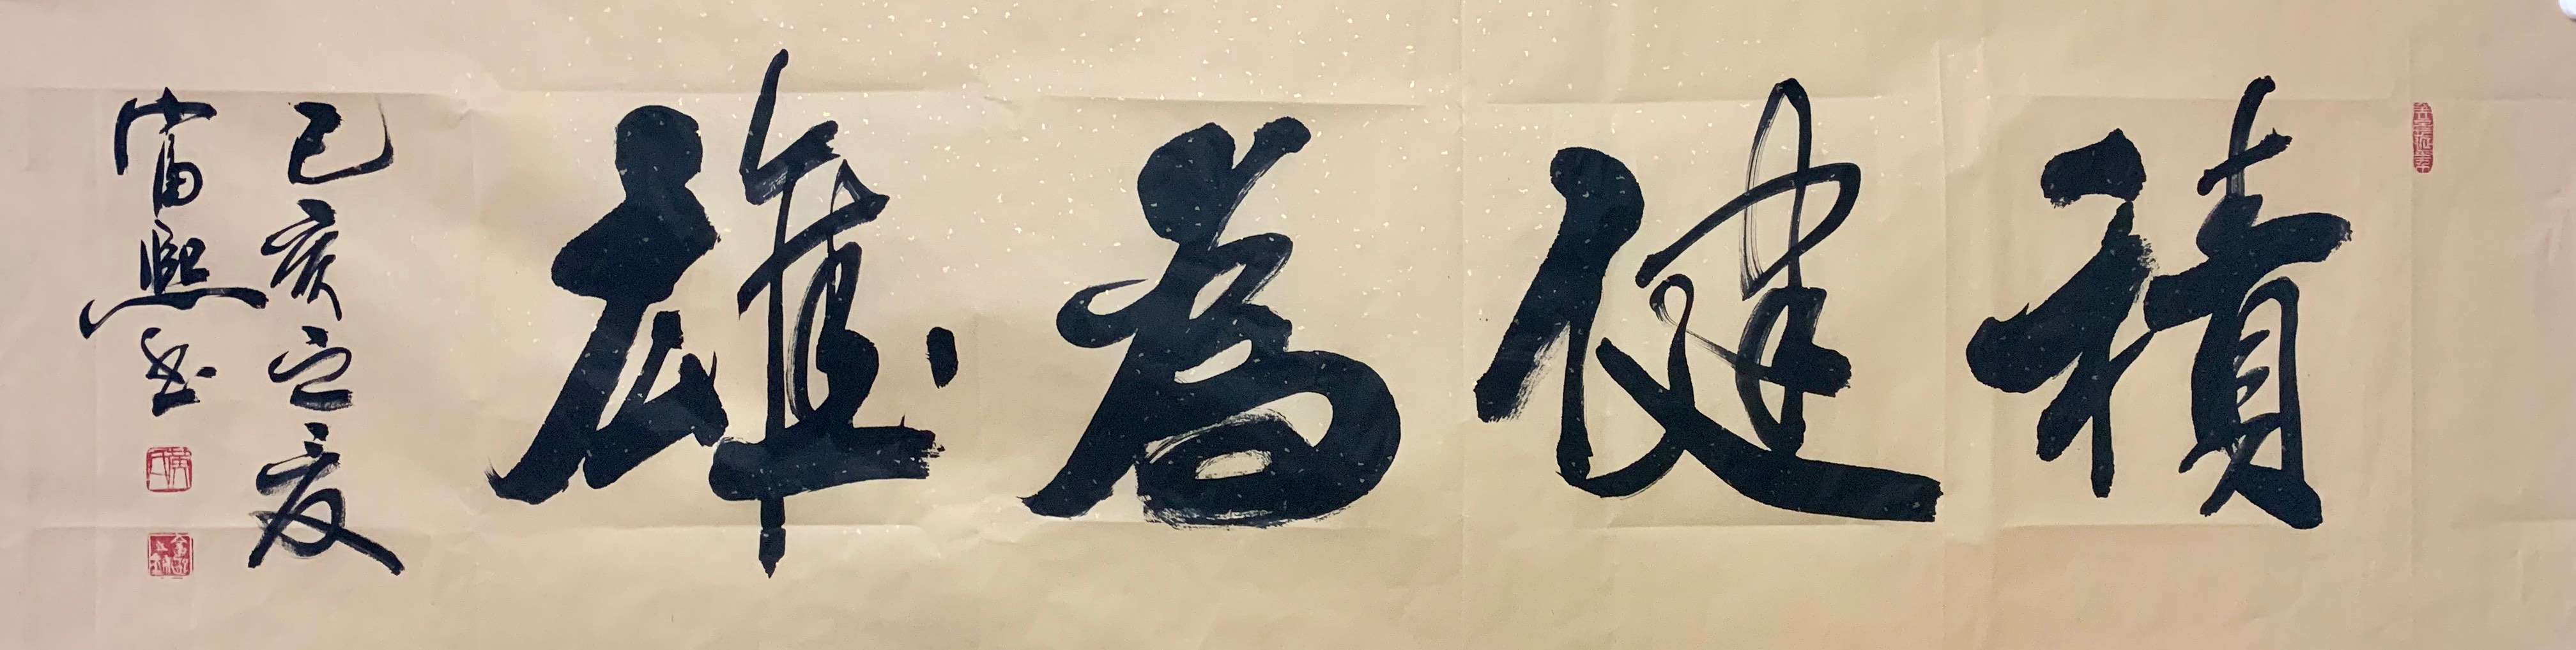 積健為雄
己亥之夏
富熙书